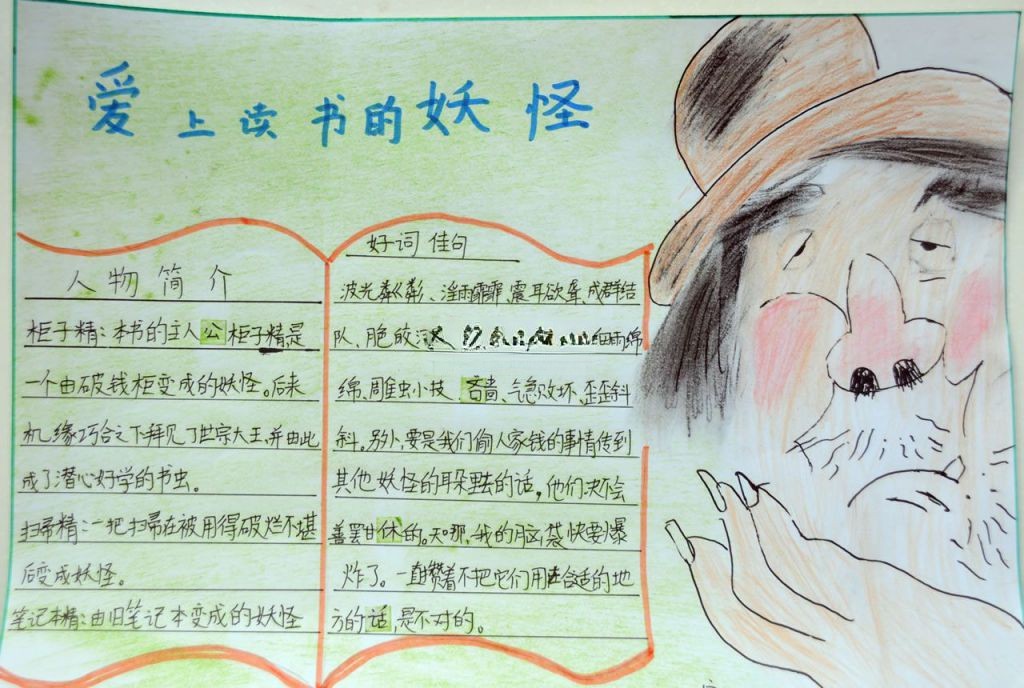 爱上读书的妖怪
人物简介
柜子精：本书的主人公柜子精是
一个由破钱柜变成的妖怪。后来
机缘巧合之下拜见了世宗大王，并由此
成了潜心好学的书虫。
扫帚精：一把扫帚在被用得破烂不堪
后变成妖怪。
笔记本精：由旧笔记本变成的妖怪
好词佳句
波光粼粼、淫雨霏霏、震耳欲聋、成群结
队、脆皎 细雨绵
绵、雕虫小技、吝啬、气急败坏、歪歪斜
斜。另外，要是我们偷人家钱的事情传到
其他妖怪的耳朵里去的话，他们决不会
善罢甘休的。天哪，我的脑袋快要爆
炸了。一直攒着不把它们用在合适的地
方的话，是不对的。